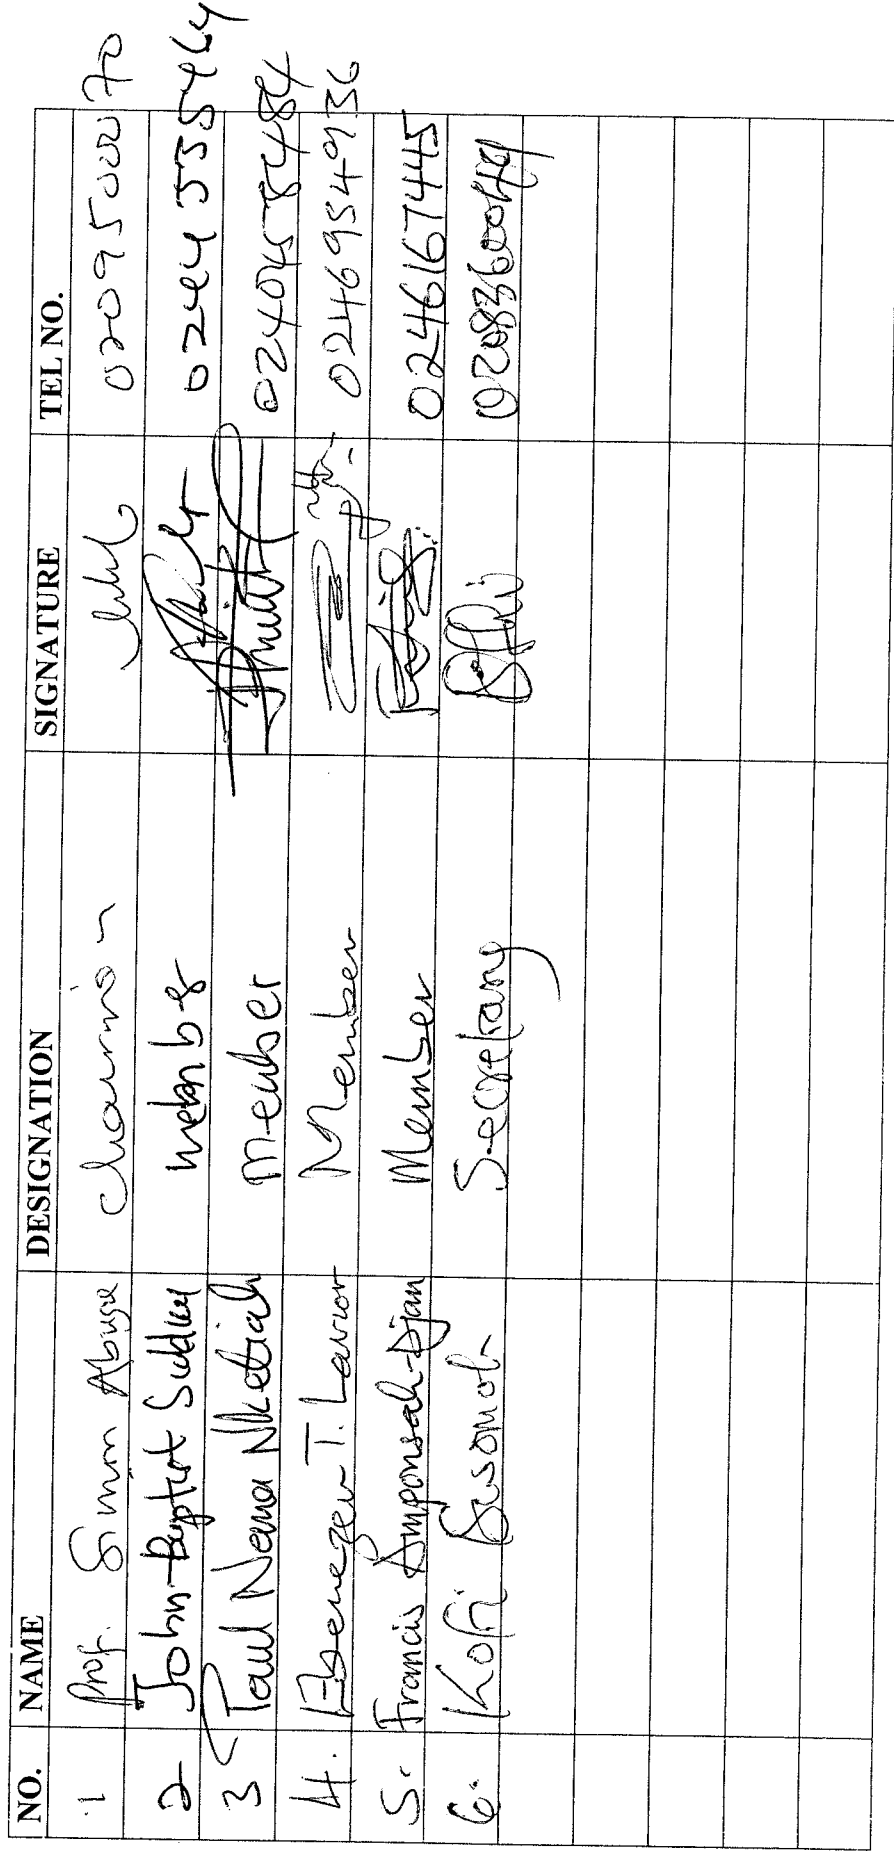 NO. NAME DESIGNATION SIGNATURE TEL NO.
1 Prof. Simon Abugre Chairman 0209500070
2 John-Baptist member 0244555464
3 Paul Nana Nketiah Member
4. Ebenezer T. Lawor Member 0246954936
5. Francis Amponsah-Djan Member 0246167445
6. Kofi Secretary